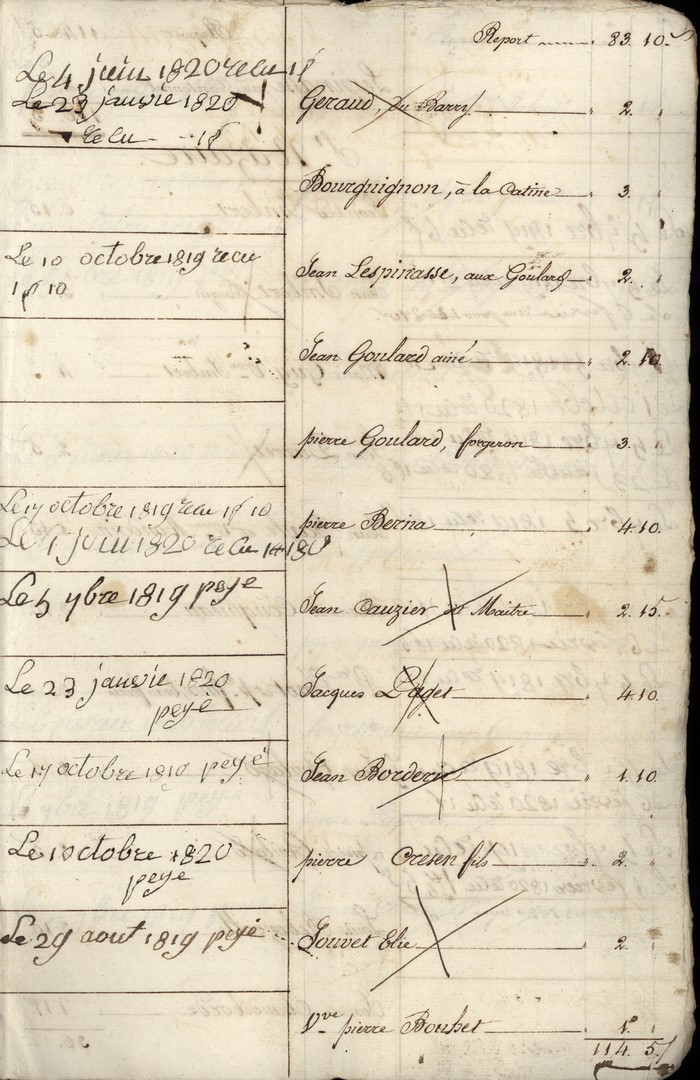 Report 83. 10.
Le 4 juin 1820 recu 1f
Le 23 janvie 1820
recu 1f
Geraud, du Barry 2. "
Bourguignon, à la Catine 3. "
Le 10 octobre 1819 recu
1f 10
Jean Lespinasse, aux Goulards 2. "
Jean Goulard ainé 2. 10.
pierre Goulard, forgeron 3. "
Le 17 octobre 1819 recu 1f 10
Le 1 juin 1820 recu
pierre Berna 4. 10.
Le 5 ybre 1819 peyé
Jean Cauzier Maitre 2. 15.
Le 23 janvie 1820
peyé
Jacques Paget 4. 10.
Le 17 octobre 1819 peyé
Jean Borderie 1. 10.
Le 1 octobre 1820
peyé
pierre Cresen fils 2. "
Le 29 aout 1819 peyé
Jouvet Elie 2. "
Vve pierre Bouhet 1. "
114. 5.